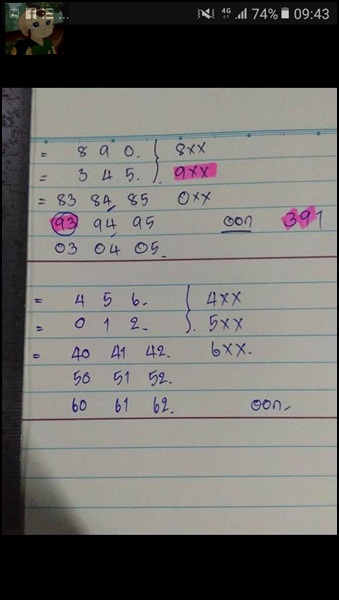 4G 74% 09:43
= 8 9 0. 8xx
= 3 4 5. 9xx
= 83 84 85 0xx
93 94 95 ออก 391
03 04 05.
= 4 5 6. 4xx
= 0 1 2. 5xx
= 40 41 42. 6xx.
50 51 52.
60 61 62. ออก